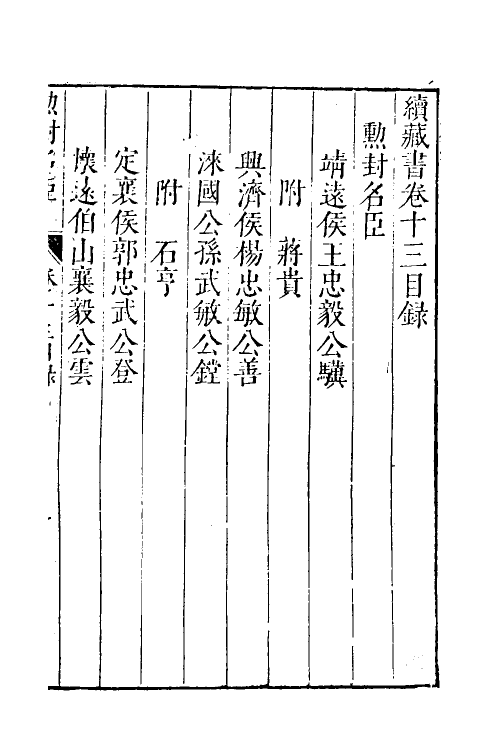 續藏書卷十三目録
勲封名臣
靖遠侯王忠毅公驥
附 蔣貴
興濟侯楊忠敏公善
涞國公孫武敏公鏜
附 石亨
定襄侯郭忠武公登
懐遠伯山襄毅公雲
勲封名臣 卷十三目録